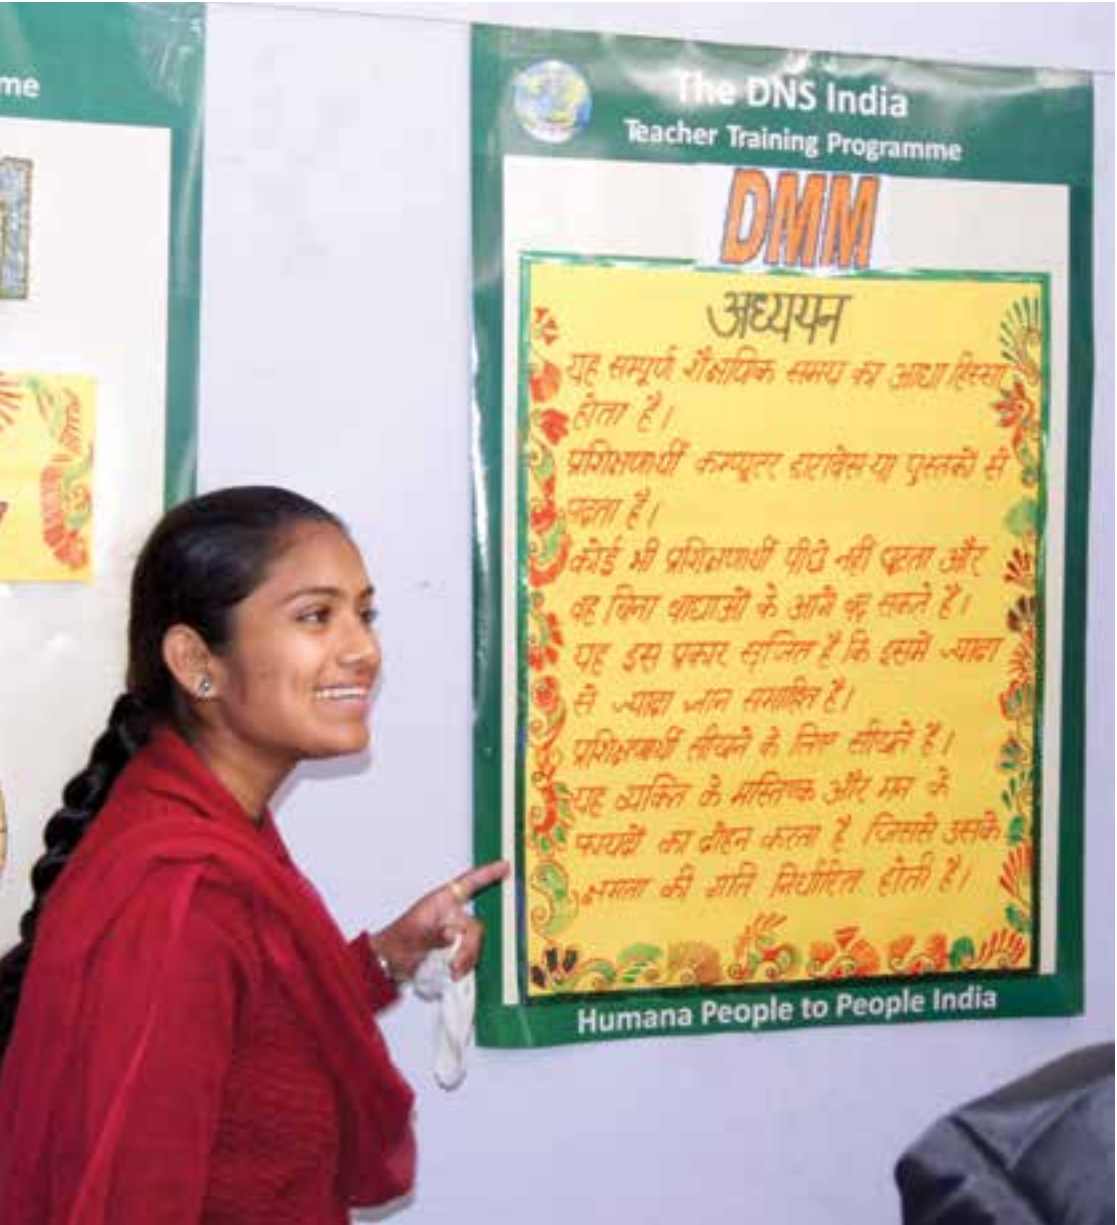 me
The DNS India
Teacher Training Programme
DMM
अध्ययन
यह सम्पूर्ण शैक्षणिक समय का आधा हिस्सा
होता है।
प्रशिक्षणार्थी कम्प्यूटर डाटाबेस या पुस्तकों से
पढ़ता है।
कोई भी प्रशिक्षणार्थी पीछे नहीं छूटता और
वह बिना बाधाओं के आगे बढ़ सकते है।
यह इस प्रकार सृजित है कि इसमें ज्यादा
से ज्यादा ज्ञान समाहित है।
प्रशिक्षणार्थी सीखने के लिए सीखते है।
यह व्यक्ति के मस्तिष्क और मन के
का दोहन करता है जिससे उसके
क्षमता की गति निर्धारित होती है।
Humana People to People India